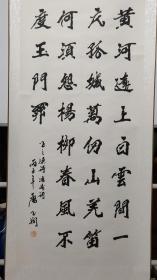 黄河遠上白雲間一
片孤城萬仞山羌笛
何須怨楊柳春風不
度玉門關
王之渙詩涼州詞